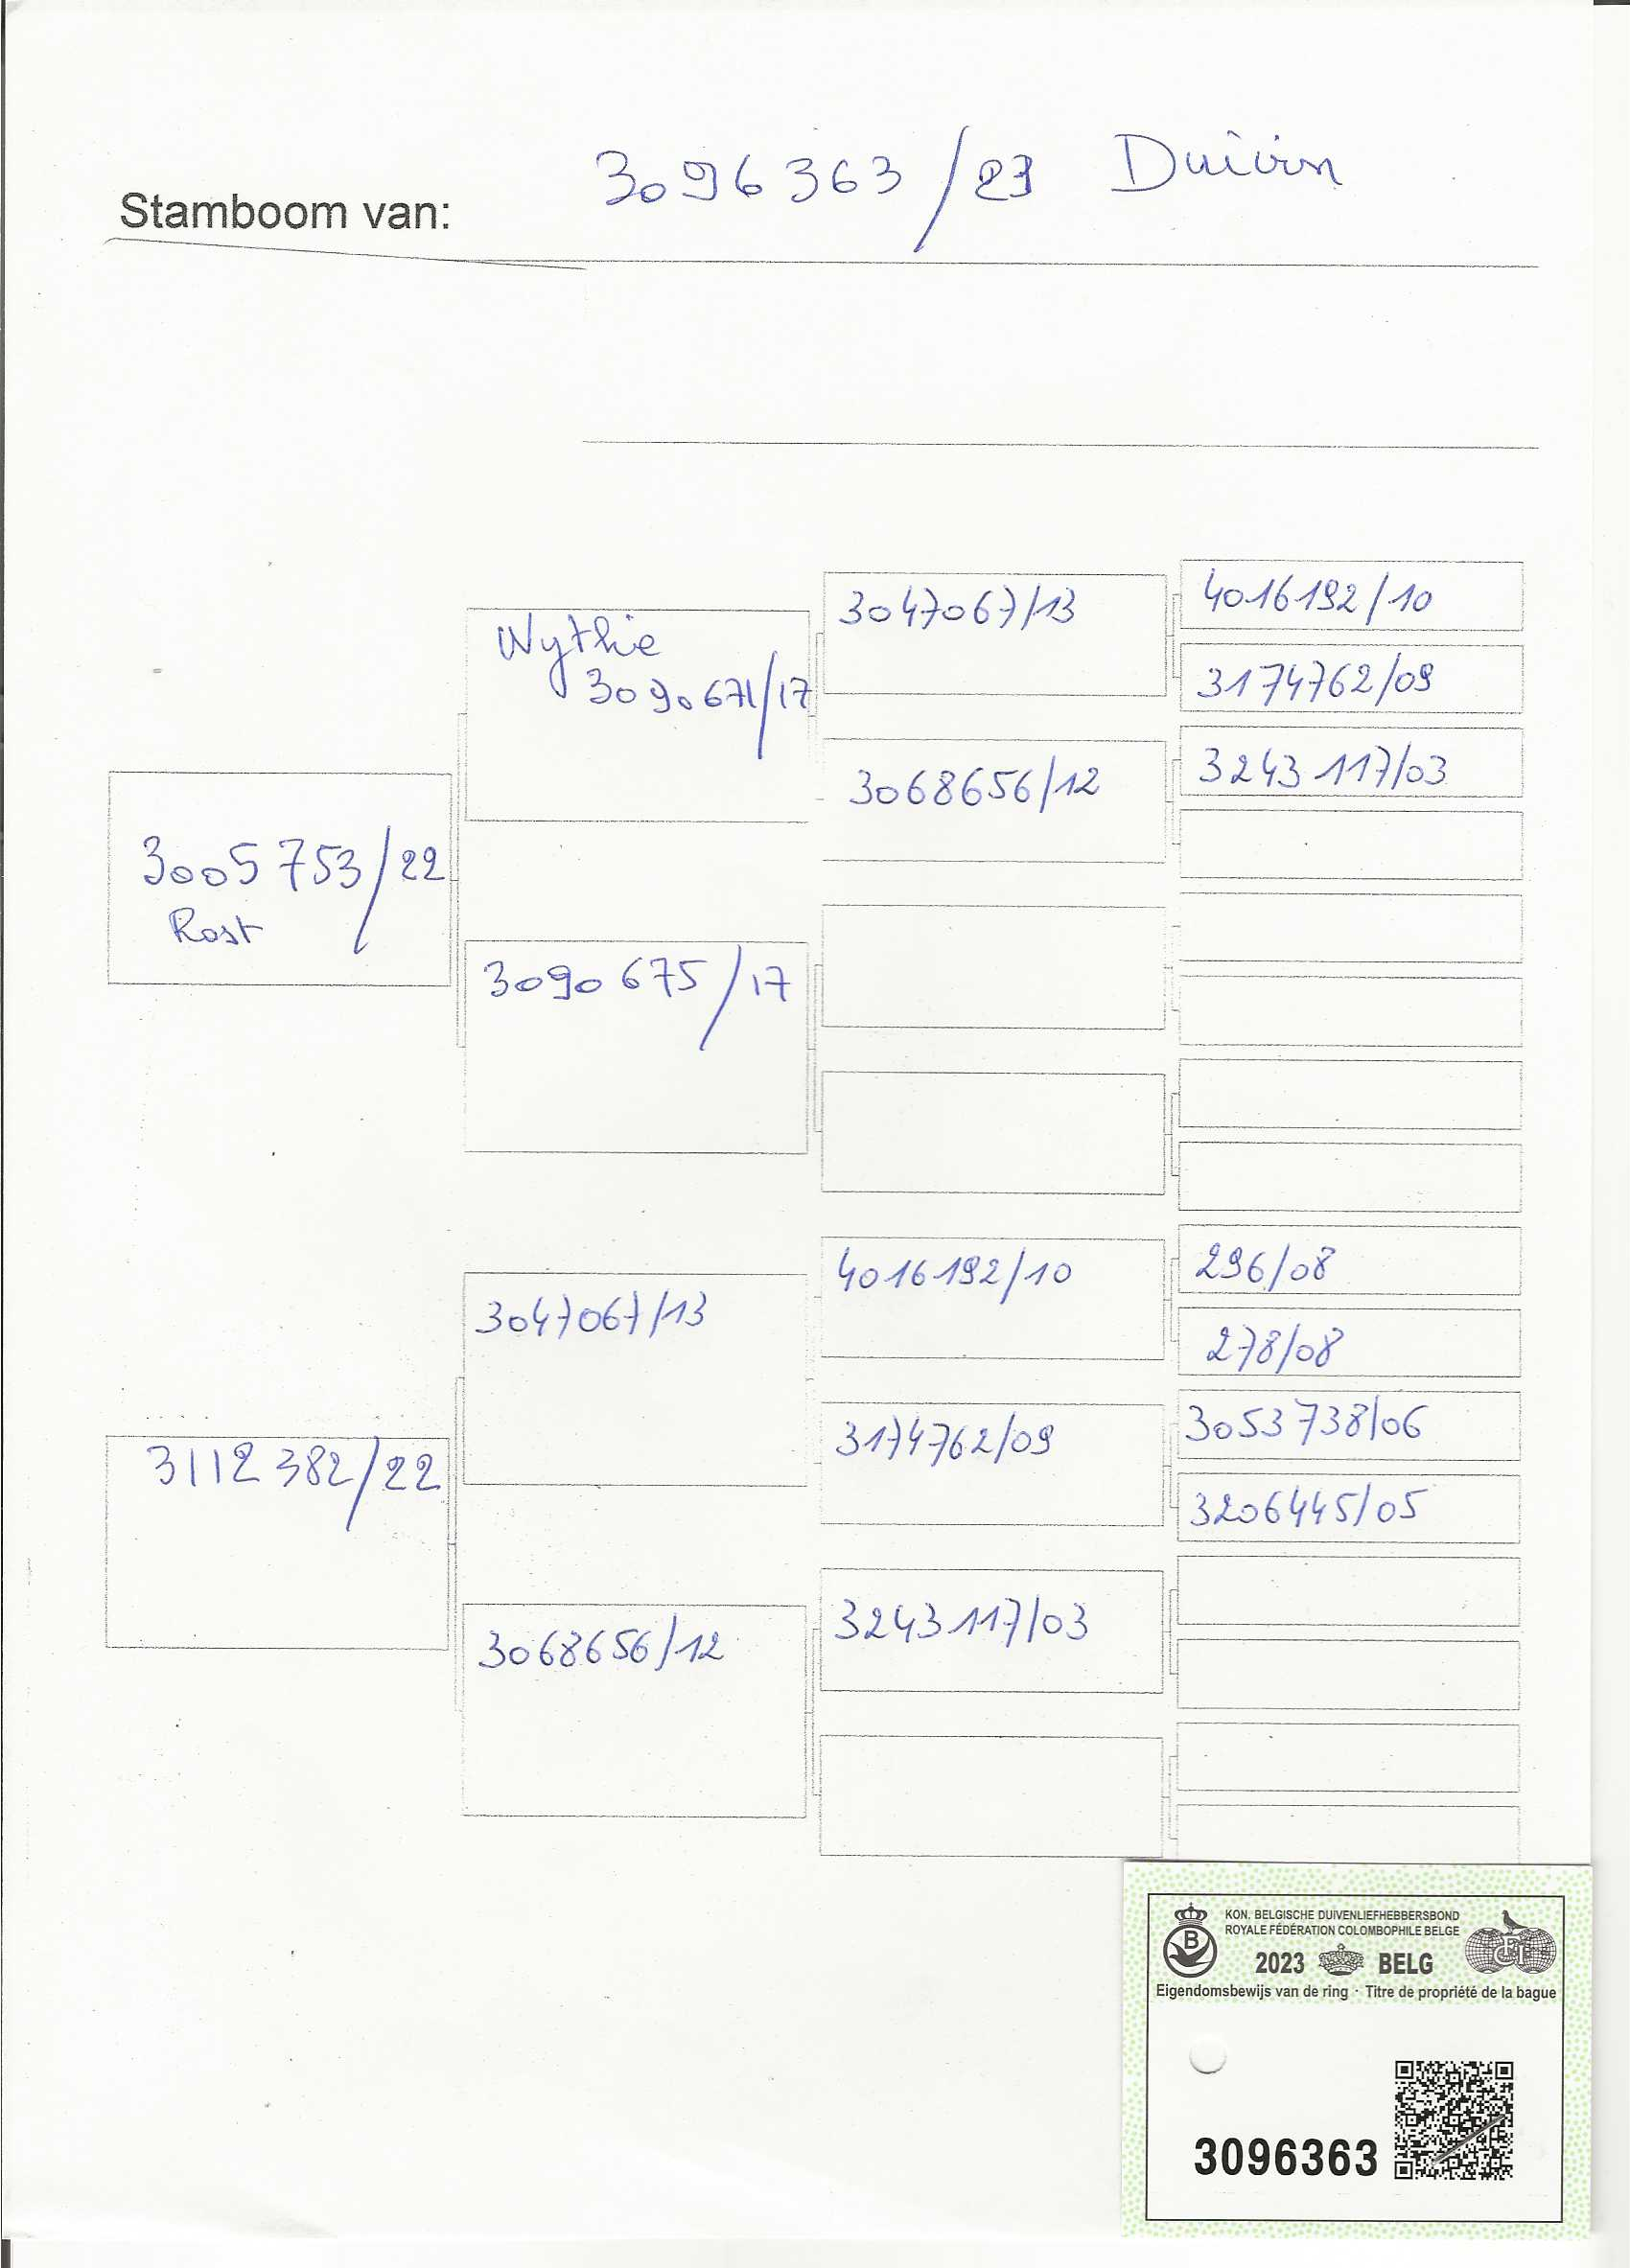 3096363/23 Duivin
Stamboom van:
4016192/10
3047067/13
Wythie
3090671/17
3174762/09
3243117/03
3068656/12
3005753/22
Rost
3090675/17
296/08
4016192/10
3047067/13
278/08
3053738/06
3174762/09
3112382/22
3206445/05
3243117/03
3068656/12
KON. BELGISCHE DUIVENLIEFHEBBERSBOND
ROYALE FÉDÉRATION COLOMBOPHILE BELGE
B
2023 BELG
FCI
Eigendomsbewijs van de ring · Titre de propriété de la bague
3096363